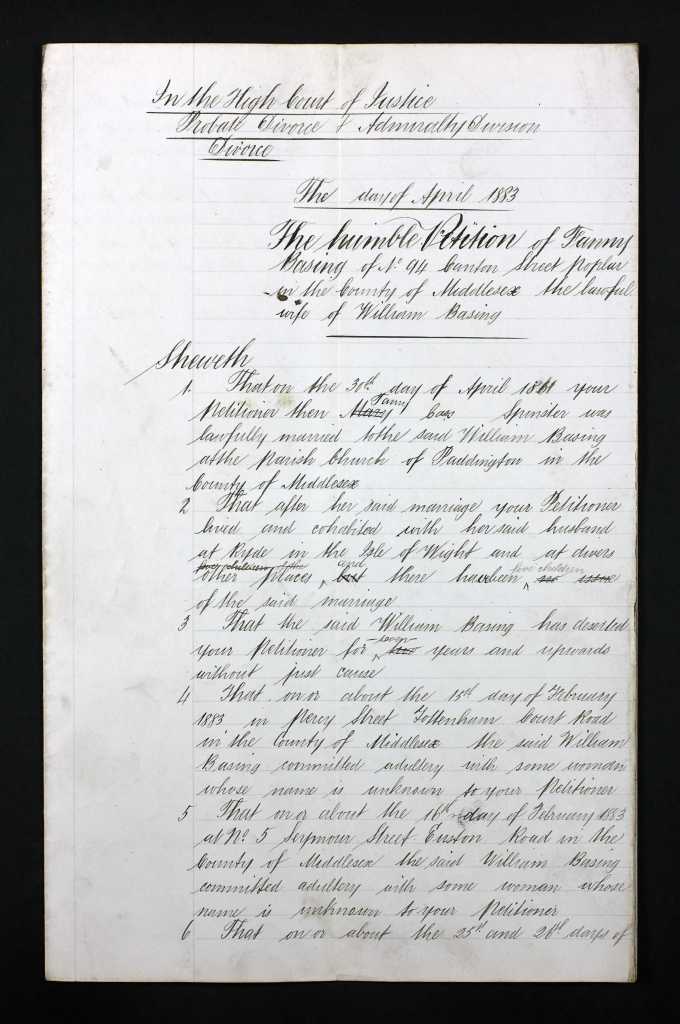 In the High Court of Justice
Probate Divorce & Admiralty Division
Divorce
The day of April 1883
The humble Petition of Fanny
Basing of No. 94 Canton Street Poplar
in the County of Middlesex the lawful
wife of William Basing
Sheweth
1. That on the 30th day of April 1861 your
Fanny
Petitioner then Mary Cox Spinster was
lawfully married to the said William Basing
at the Parish Church of Paddington in the
County of Middlesex
2 That after her said marriage your Petitioner
lived and cohabited with her said husband
at Ryde in the Isle of Wight and at divers
five children of the and five children
other places but there have been no issue
of the said marriage
3 That the said William Basing has deserted
seven
your Petitioner for two years and upwards
without just cause
4 That on or about the 15th day of February
1883 in Percy Street Tottenham Court Road
in the County of Middlesex the said William
Basing committed adultery with some woman
whose name is unknown to your Petitioner
5 That on or about the 16th day of February 1883
at No. 5 Seymour Street Euston Road in the
County of Middlesex the said William Basing
committed adultery with some woman whose
name is unknown to your Petitioner
6 That on or about the 25th and 26th days of